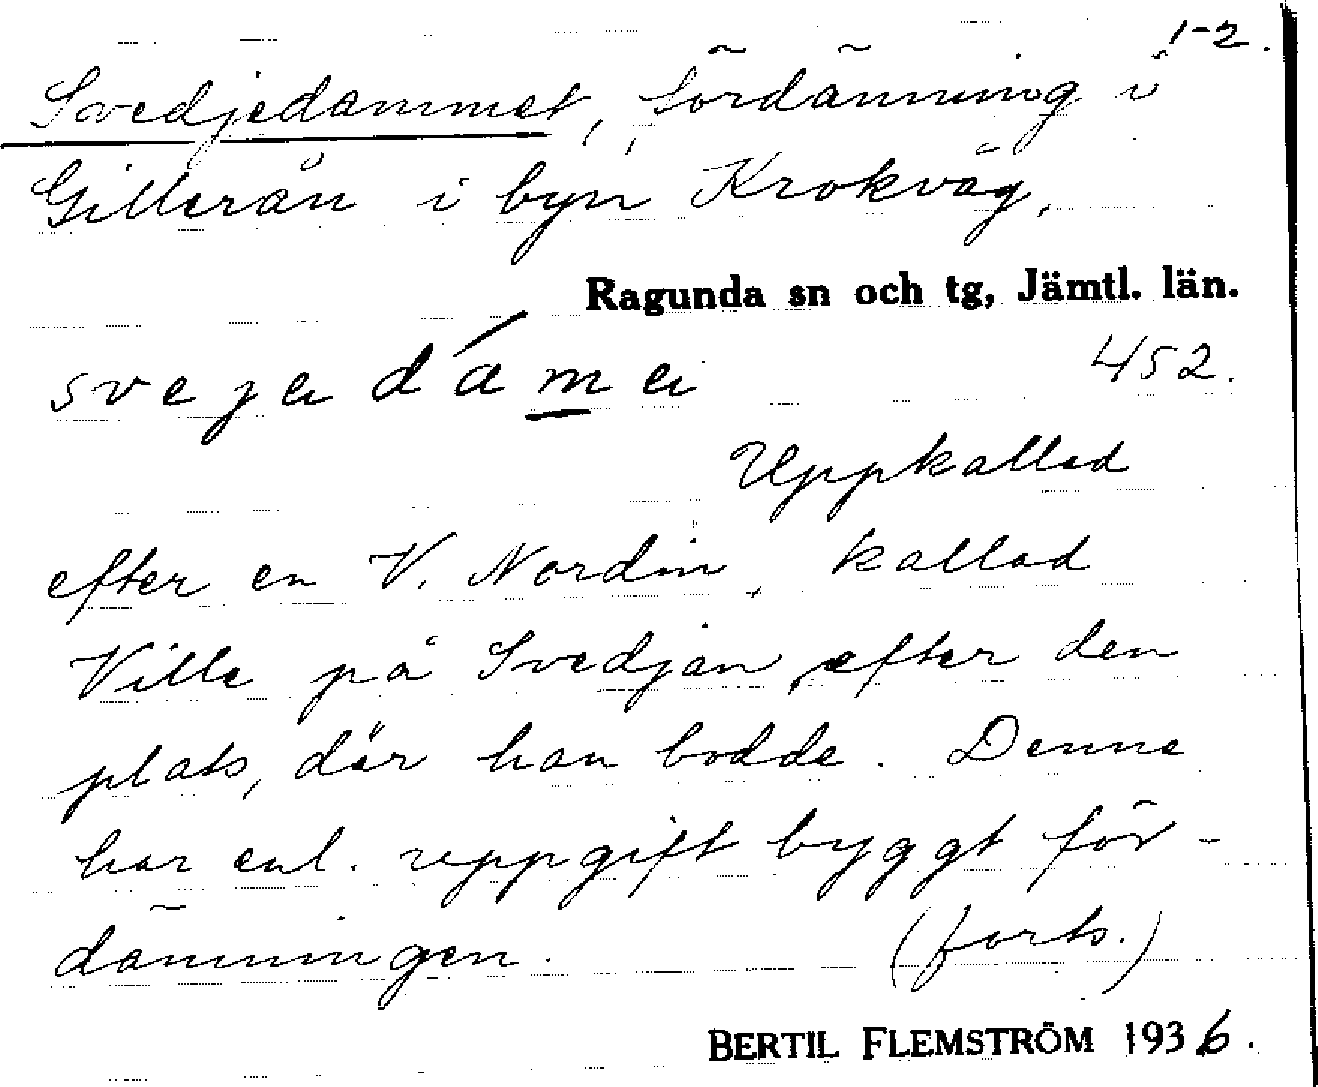 1-2.
Svedjedammet, fördämning i
Gillerån i byn Krokvåg,
Ragunda sn och tg, Jämtl. län.
452.
Uppkallad
efter en V. Nordin, kallad
Ville på Svedjan, efter den
plats, där han bodde. Denne
har enl. uppgift byggt för-
dämningen. (forts.)
BERTIL FLEMSTRÖM 1936.